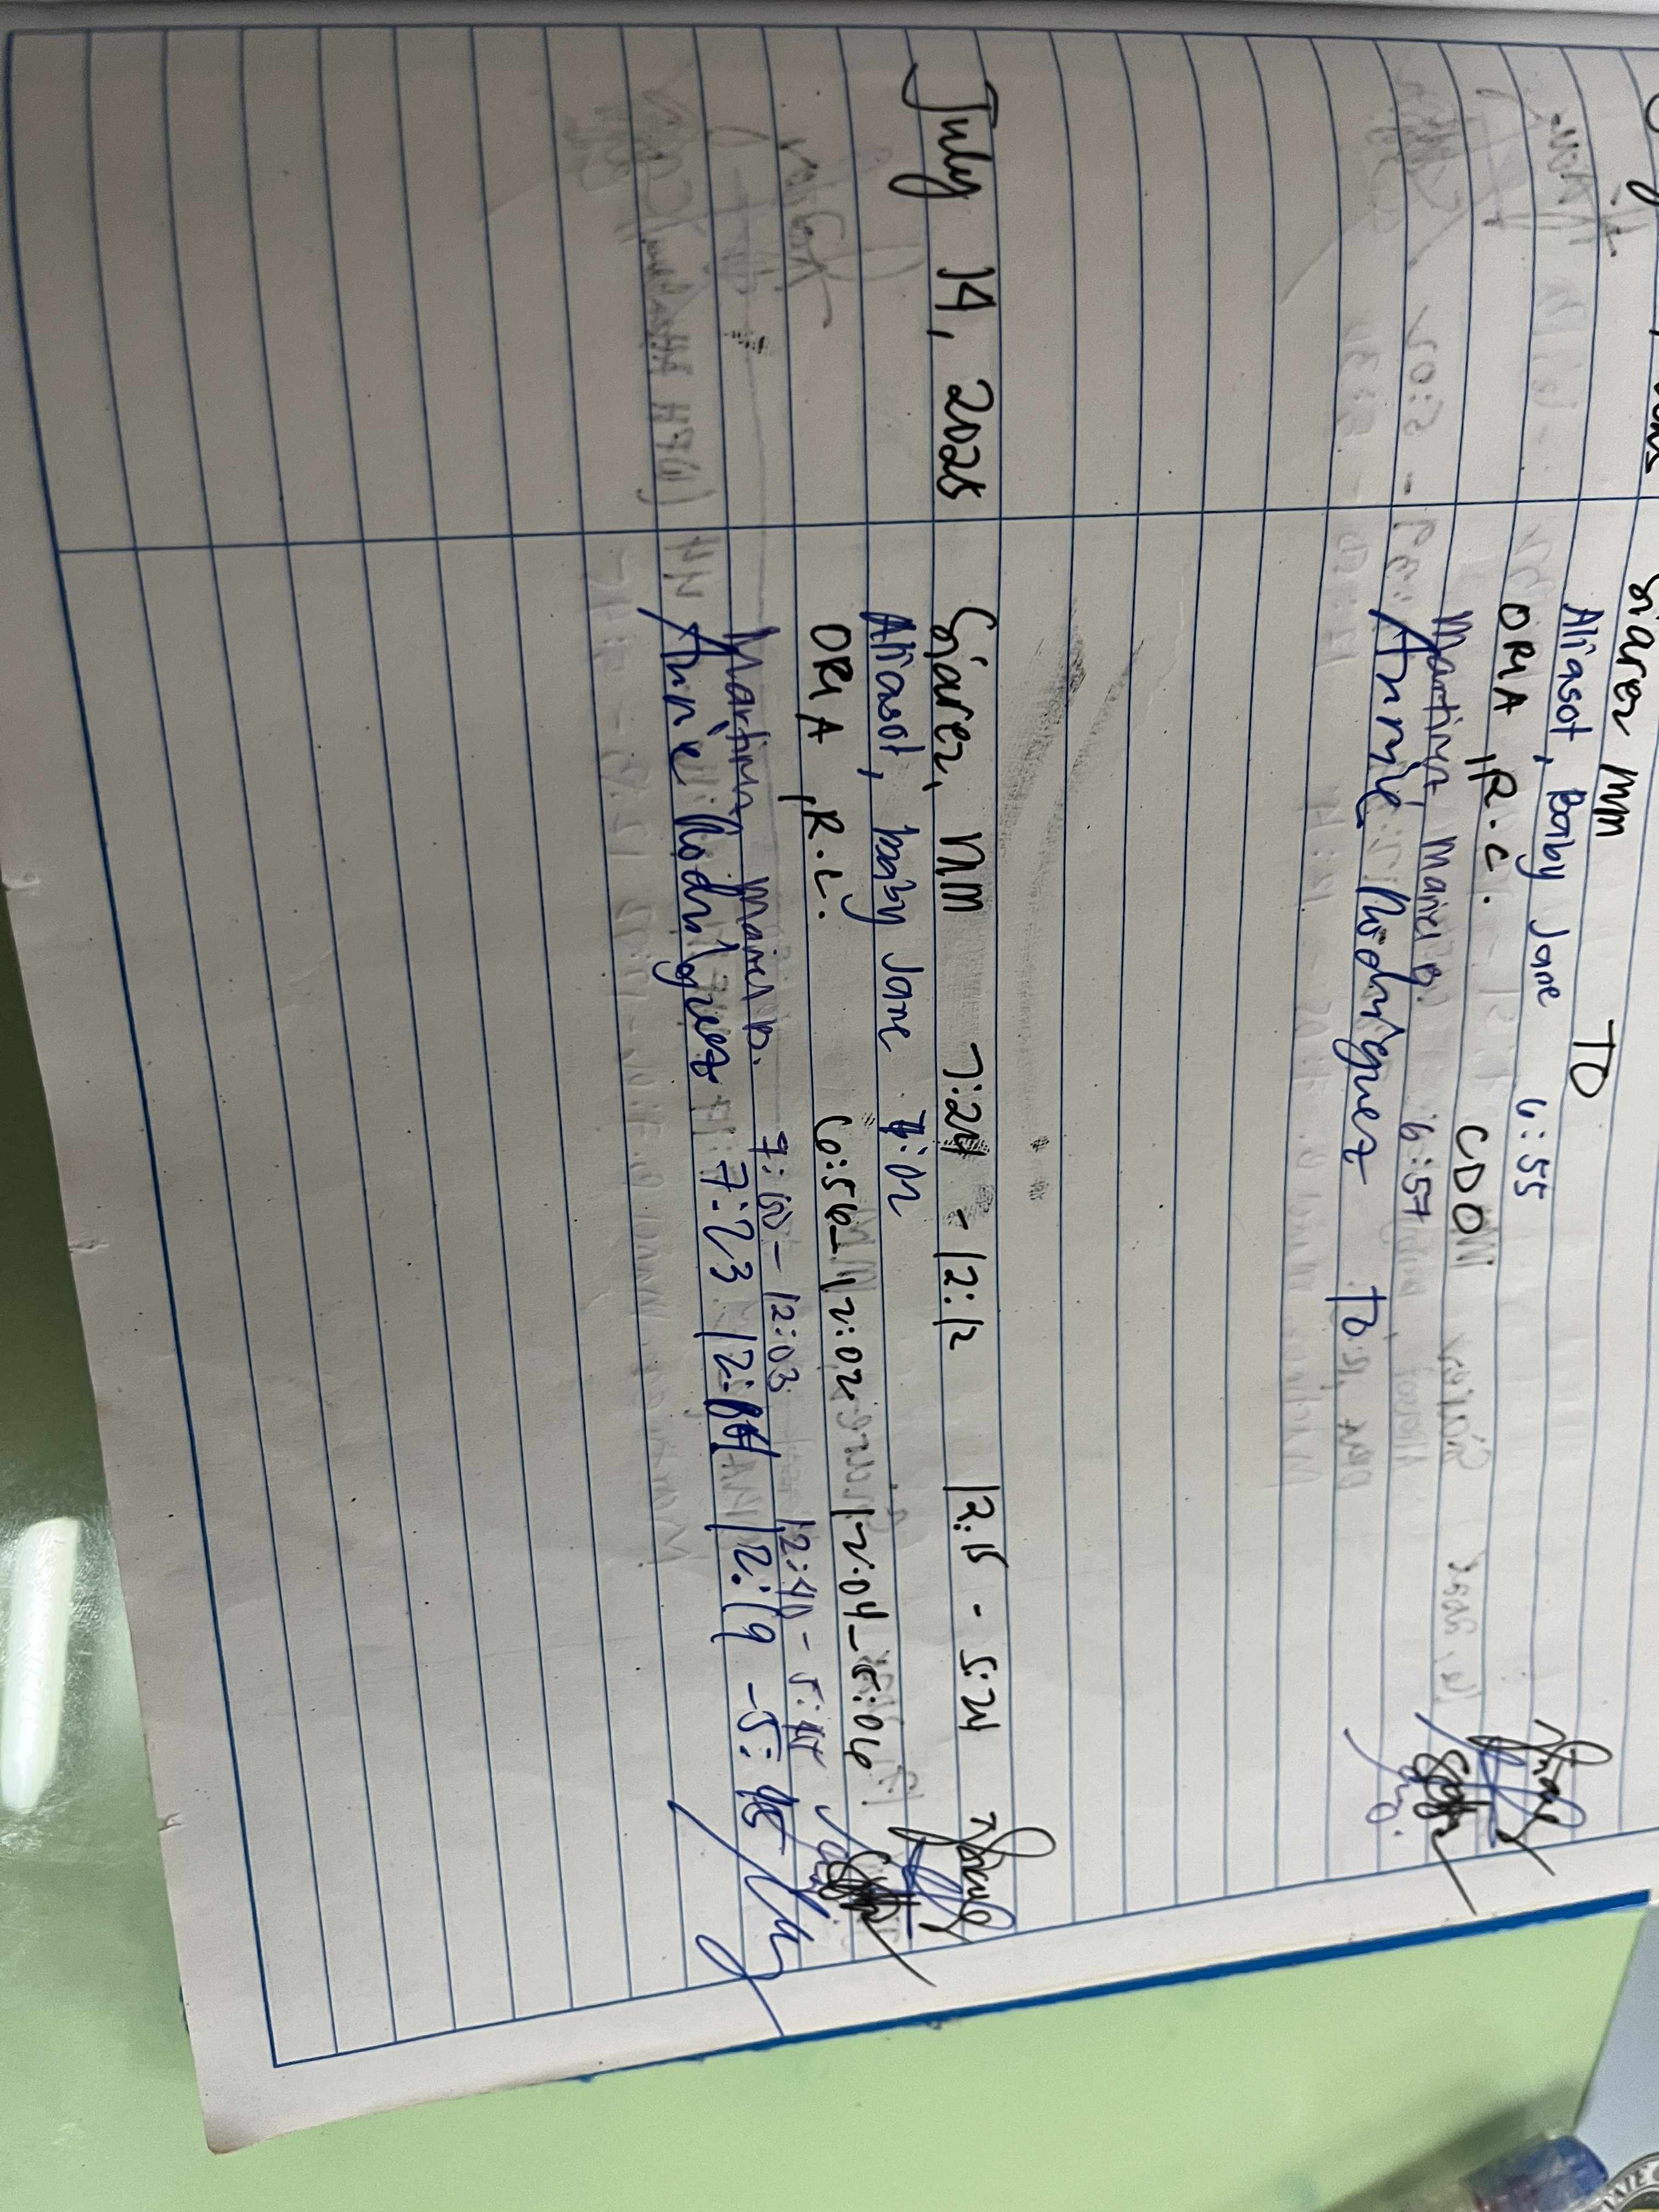 Siarez MM TO
Aliasot, Baby Jane 6:55
ORIA, R.C. CDO
Martinez, Mariel B. 6:57
Annie Rodriguez T.O.
July 14, 2025 Siarez, MM 7:24 - 12:12 12:15 - 5:21
Aliasot, Baby Jane 7:02
ORIA, R.C. 6:56 - 12:02 12:04 - 5:06
Martinez, Mariel B. 7:00 - 12:03 12:40 - 5:45
Annie Rodriguez 7:23 12:19 - 5:45